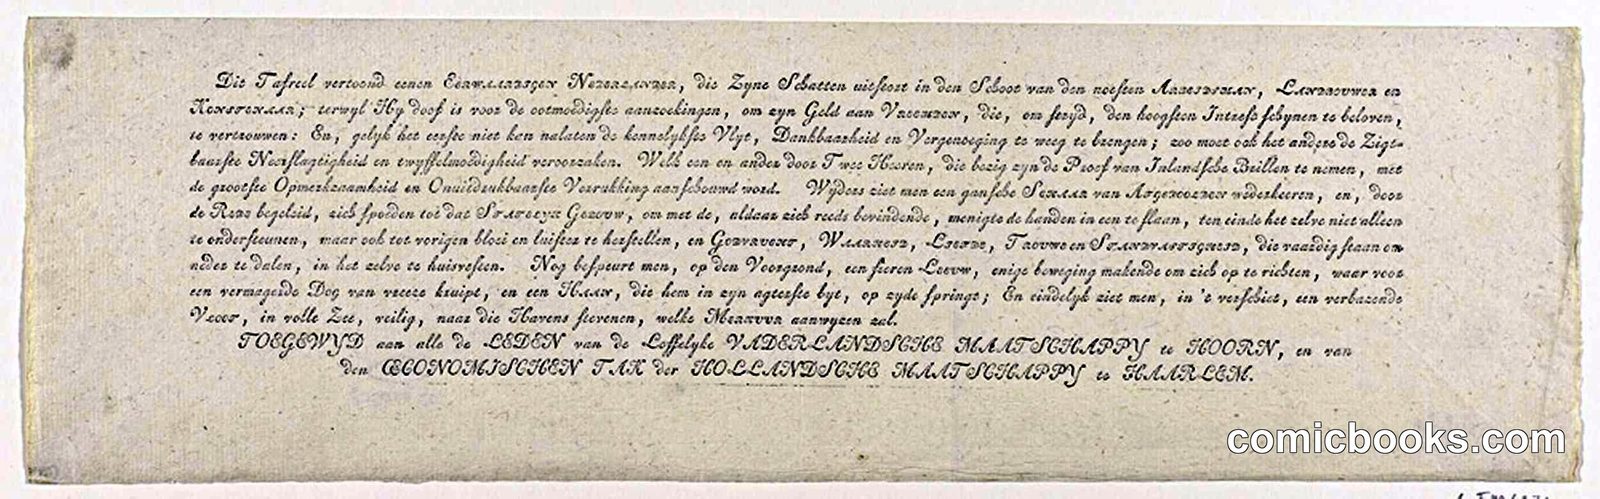 Dit Tafreel vertoond eenen EERWAARDIGEN NEDERLANDER, die Zyne Schatten uitstort in den Schoot van den noesten ARBEIDSMAN, LANDBOUWER en
KONSTENAAR; terwyl Hy doof is voor de ootmoedigste aanzoekingen, om zyn Geld aan VREEMDEN, die, om stryd, den hoogsten Intrest schynen te beloven,
te vertrouwen: En, gelyk het eerste niet kan nalaten de kennelykste Vlyt, Dankbaarheid en Vergenoeging te weeg te brengen; zoo moet ook het andere de Zigt-
baarste Neerslagtigheid en twyffelmoedigheid veroorzaken. Welk een en ander door Twee Heeren, die bezig zyn de Proef van Inlandsche Brillen te nemen, met
de grootste Opmerkzaamheid en Onuitdrukbaarste Verrukking aanschouwd word. Wyders ziet men een gansche SCHAAR van AFGEWORVEN wederkeeren, en, door
de REDE begeleid, zich spoeden tot dat STAATELYK GEBOUW, om met de, aldaar zich reeds bevindende, menigte de handen in een te slaan, ten einde het zelve niet alleen
te ondersteunen, maar ook tot vorigen bloei en luister te herstellen, en GODVRUCHT, WAARHEID, LIEFDE, TROUWE en STANDVASTIGHEID, die vaardig staan om
neder te dalen, in het zelve te huisvesten. Nog bespeurt men, op den Voorgrond, een fieren LEEUW, enige beweging makende om zich op te richten, waar voor
een vermagerde Dog van vreeze kruipt, en een HAAN, die hem in zyn agterste byt, op zyde springt; En eindelyk ziet men, in 't verschiet, een verbazende
VLOOT, in volle Zee, veilig, naar die Havens stevenen, welke MERKUUR aanwyzen zal.
TOEGEWYD aan alle de LEDEN van de Loffelyke VADERLANDSCHE MAATSCHAPPY te HOORN, en van
den ŒCONOMISCHEN TAK der HOLLANDSCHE MAATSCHAPPY te HAARLEM.
comicbooks.com